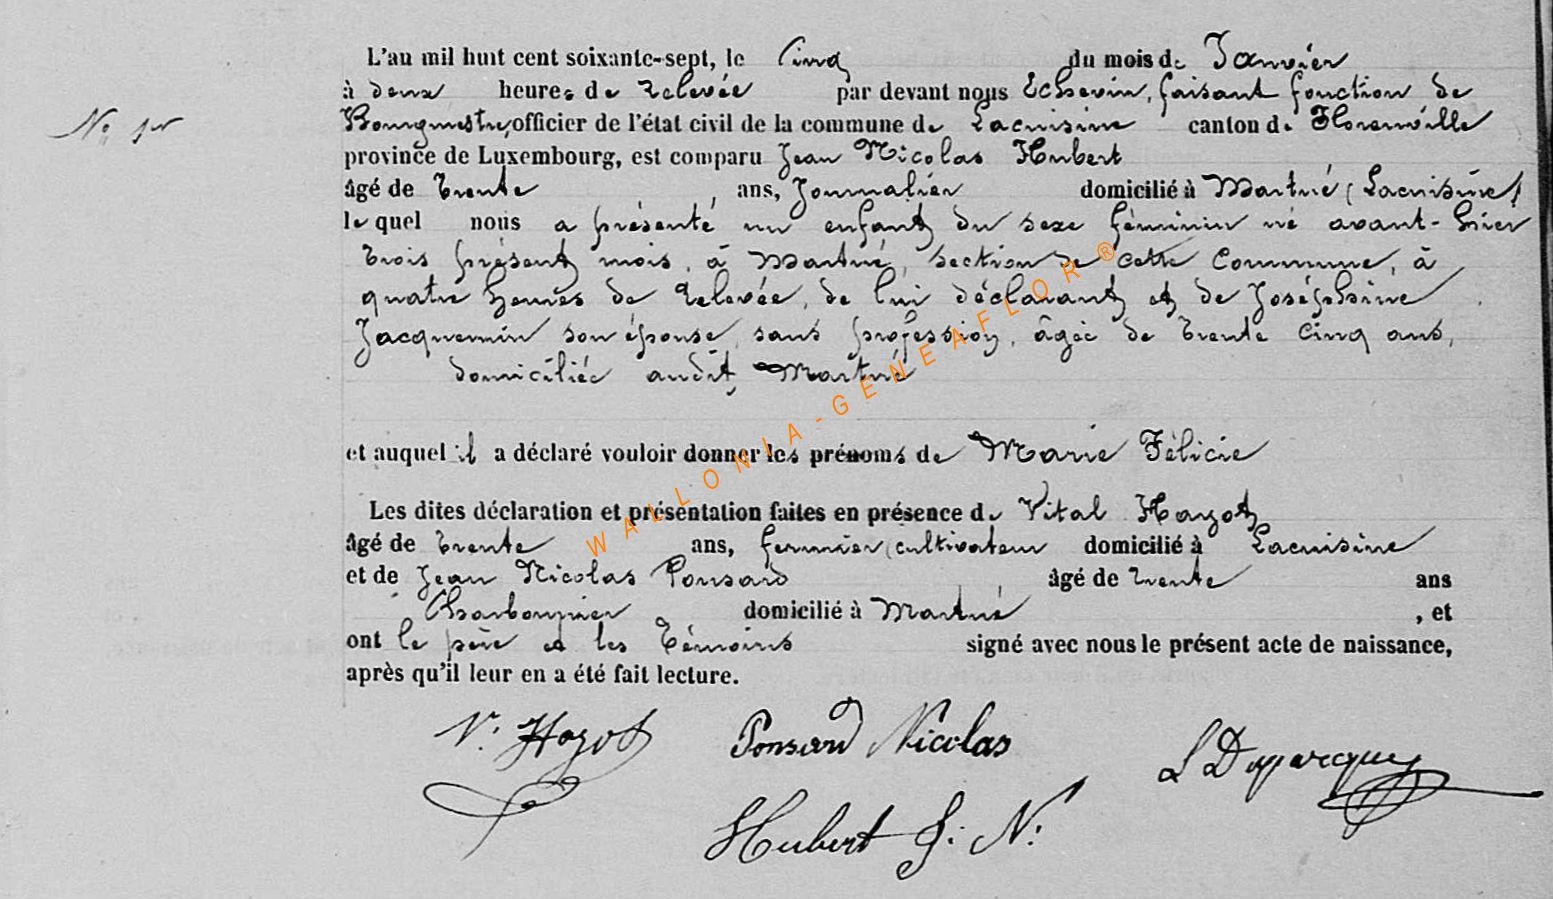 N° 1er
L'an mil huit cent soixante-sept, le Cinq du mois de Janvier
à deux heures de relevée par devant nous Echevin, faisant fonction de
Bourgmestre, officier de l'état civil de la commune de Lacuisine canton de Florenville
province de Luxembourg, est comparu Jean Nicolas Hubert
âgé de trente ans, Journalier domicilié à Martué (Lacuisine)
lequel nous a présenté un enfant du sexe féminin né avant-hier
trois présent mois, à Martué, section de cette Commune, à
quatre heures de relevée, de lui déclarant et de Joséphine
Jacquemin son épouse, sans profession, âgée de trente cinq ans,
domiciliée audit Martué
et auquel il a déclaré vouloir donner les prénoms de Marie Félicie
Les dites déclaration et présentation faites en présence de Vital Hazot
âgé de trente ans, fermier (cultivateur domicilié à Lacuisine
et de Jean Nicolas Ponsard âgé de trente ans
Charbonnier domicilié à Martué, et
ont le père et les témoins signé avec nous le présent acte de naissance,
après qu'il leur en a été fait lecture.
V. Hazot Ponsard Nicolas
L Duparcque
Hubert J. N.
WALLONIA-GENEAFLOR®